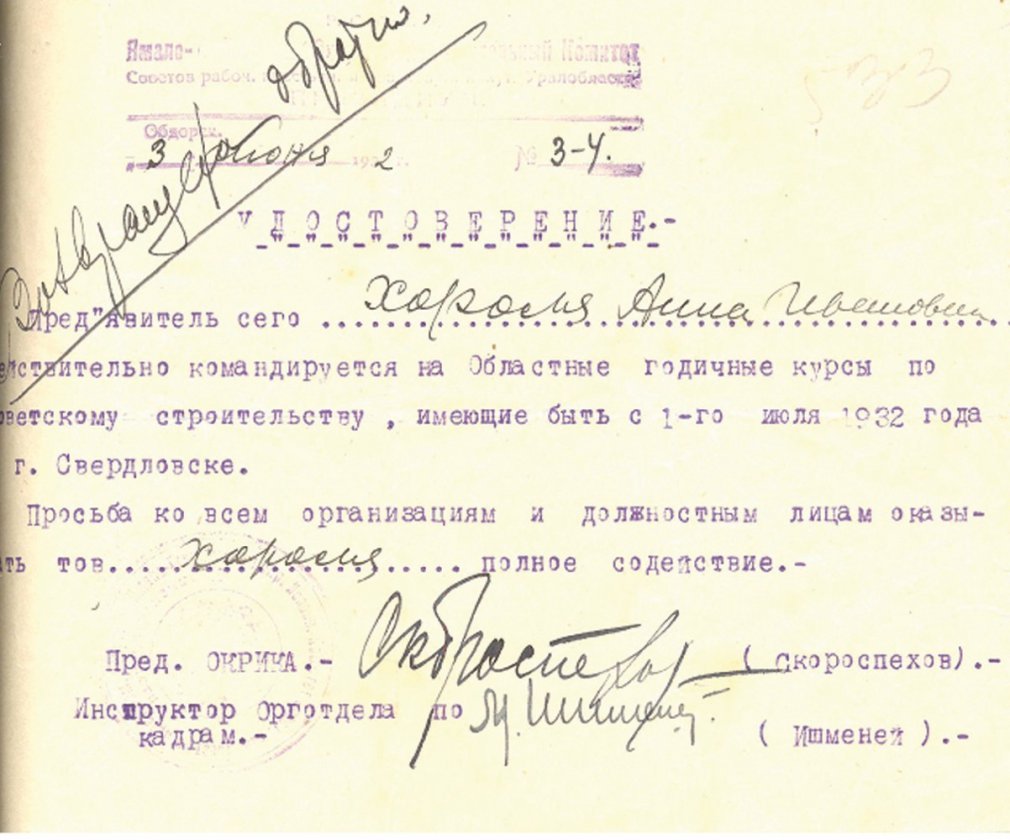 обратно.
Ямало- тельный Комитет
Советов рабоч. Уралобласти
Обдорск.
3 июня 1932 г. № 3-4.
Возвращено
УДОСТОВЕРЕНИЕ.-
Пред"явитель сего ... Хороля Анна Ивановна
ействительно командируется на Областные годичные курсы по
оветскому строительству , имеющие быть с 1-го июля 1932 года
г. Свердловске.
Просьба ко всем организациям и должностным лицам оказы-
ать тов..... Хороля ..... полное содействие.-
Пред. ОКРИКА.- Скороспехов ( Скороспехов).-
Инструктор Орготдела по
кадрам.- ( Ишменей ).-